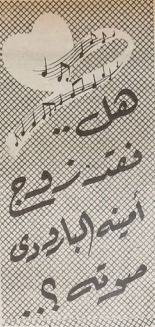 هل..
فقد زوج
أمينه البارودى
صوته ؟..